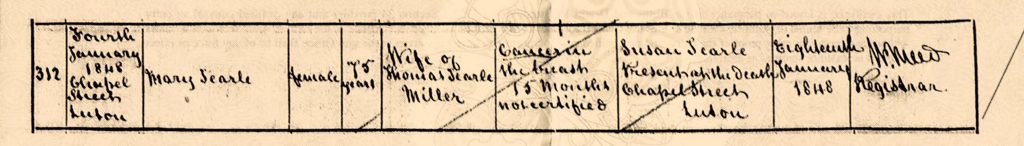 312
Fourth
January
1848
Chapel
Street
Luton
Mary Tearle
female
75
years
Wife of
Thomas Tearle
Miller
Cancer in
the breast
15 Months
not certified
Susan Tearle
Present at the death
Chapel Street
Luton
Eighteenth
January
1848
Registrar